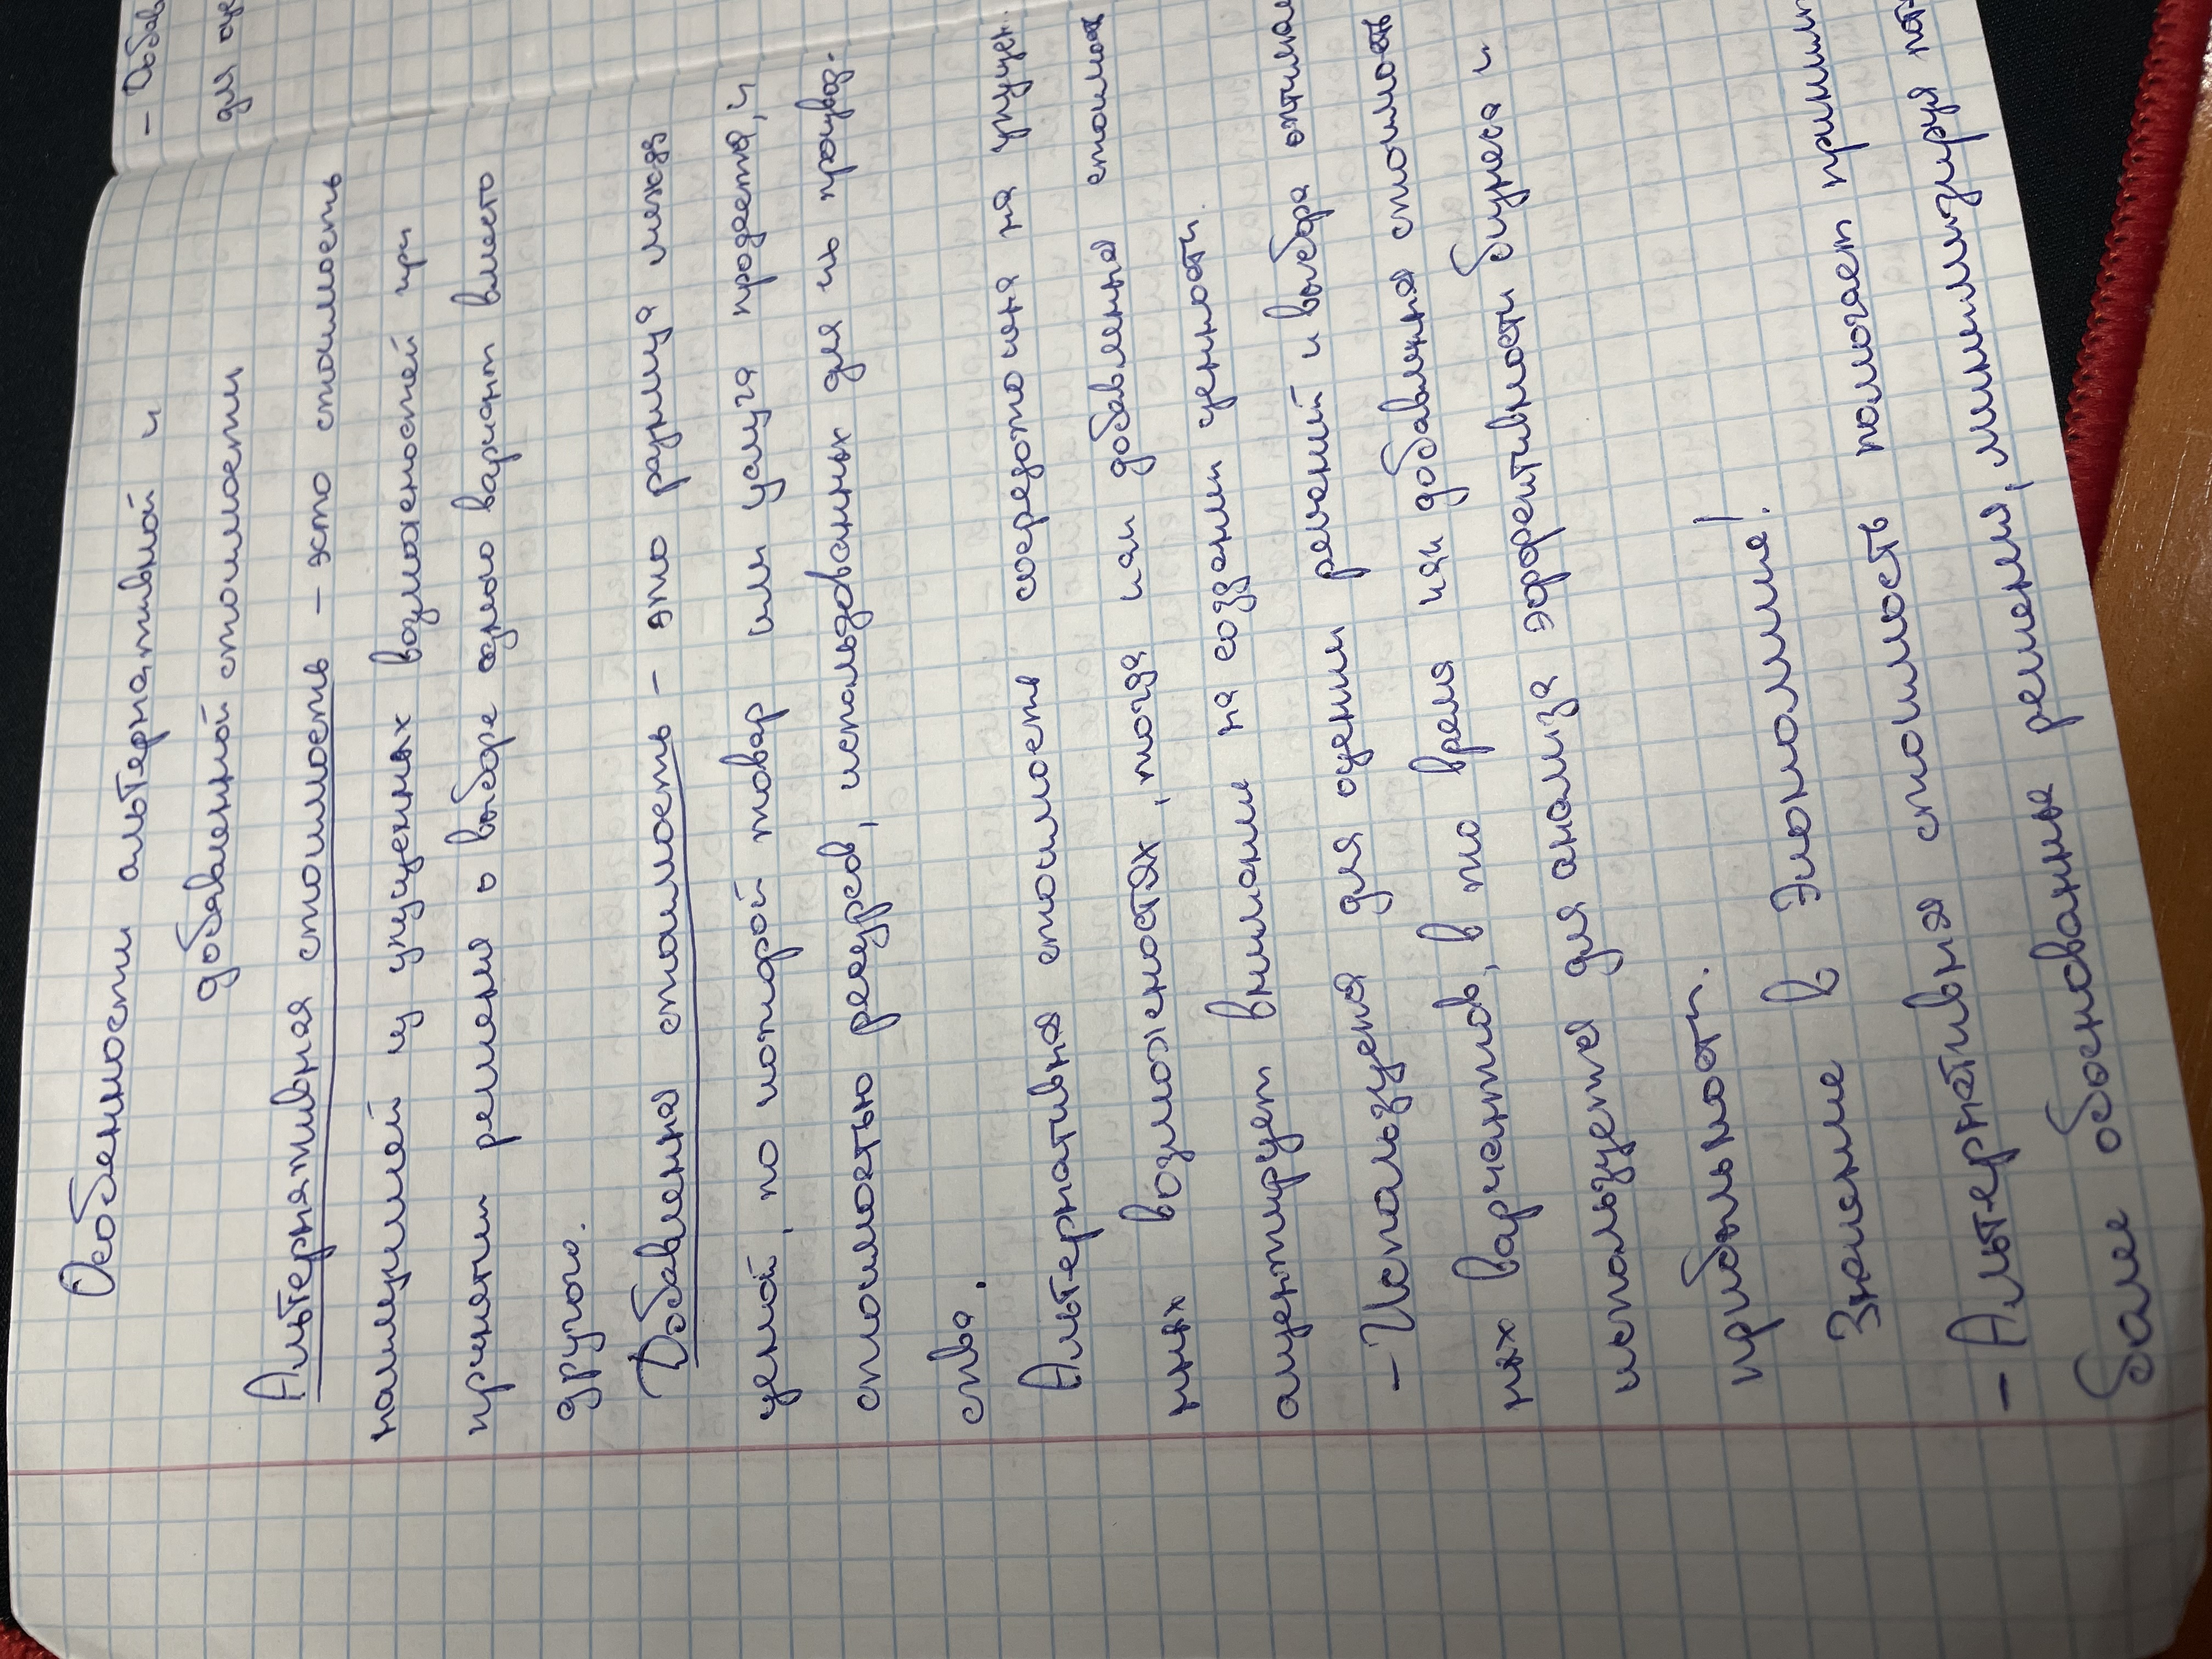 Особенности альтернативной и
добавленной стоимости
Альтернативная стоимость – это стоимость
наилучшей из упущенных возможностей при
принятии решения о выборе одного вариант вместо
другого.
Добавленная стоимость – это разница между
ценой, по которой товар или услуга продается, и
стоимостью ресурсов, использованных для их производ-
ства.
Альтернативная стоимость сосредоточена на упущен
ных возможностях, тогда как добавленная стоимость
акцентирует внимание на создании ценности.
– Используется для оценки решений и выбора оптимал
ных вариантов, в то время как добавленная стоимость
используется для анализа эффективности бизнеса и
прибыльности.
Значение в экономике!
– Альтернативная стоимость помогает приним
более обоснованные решения, минимизируя пот
– Добав
для оце